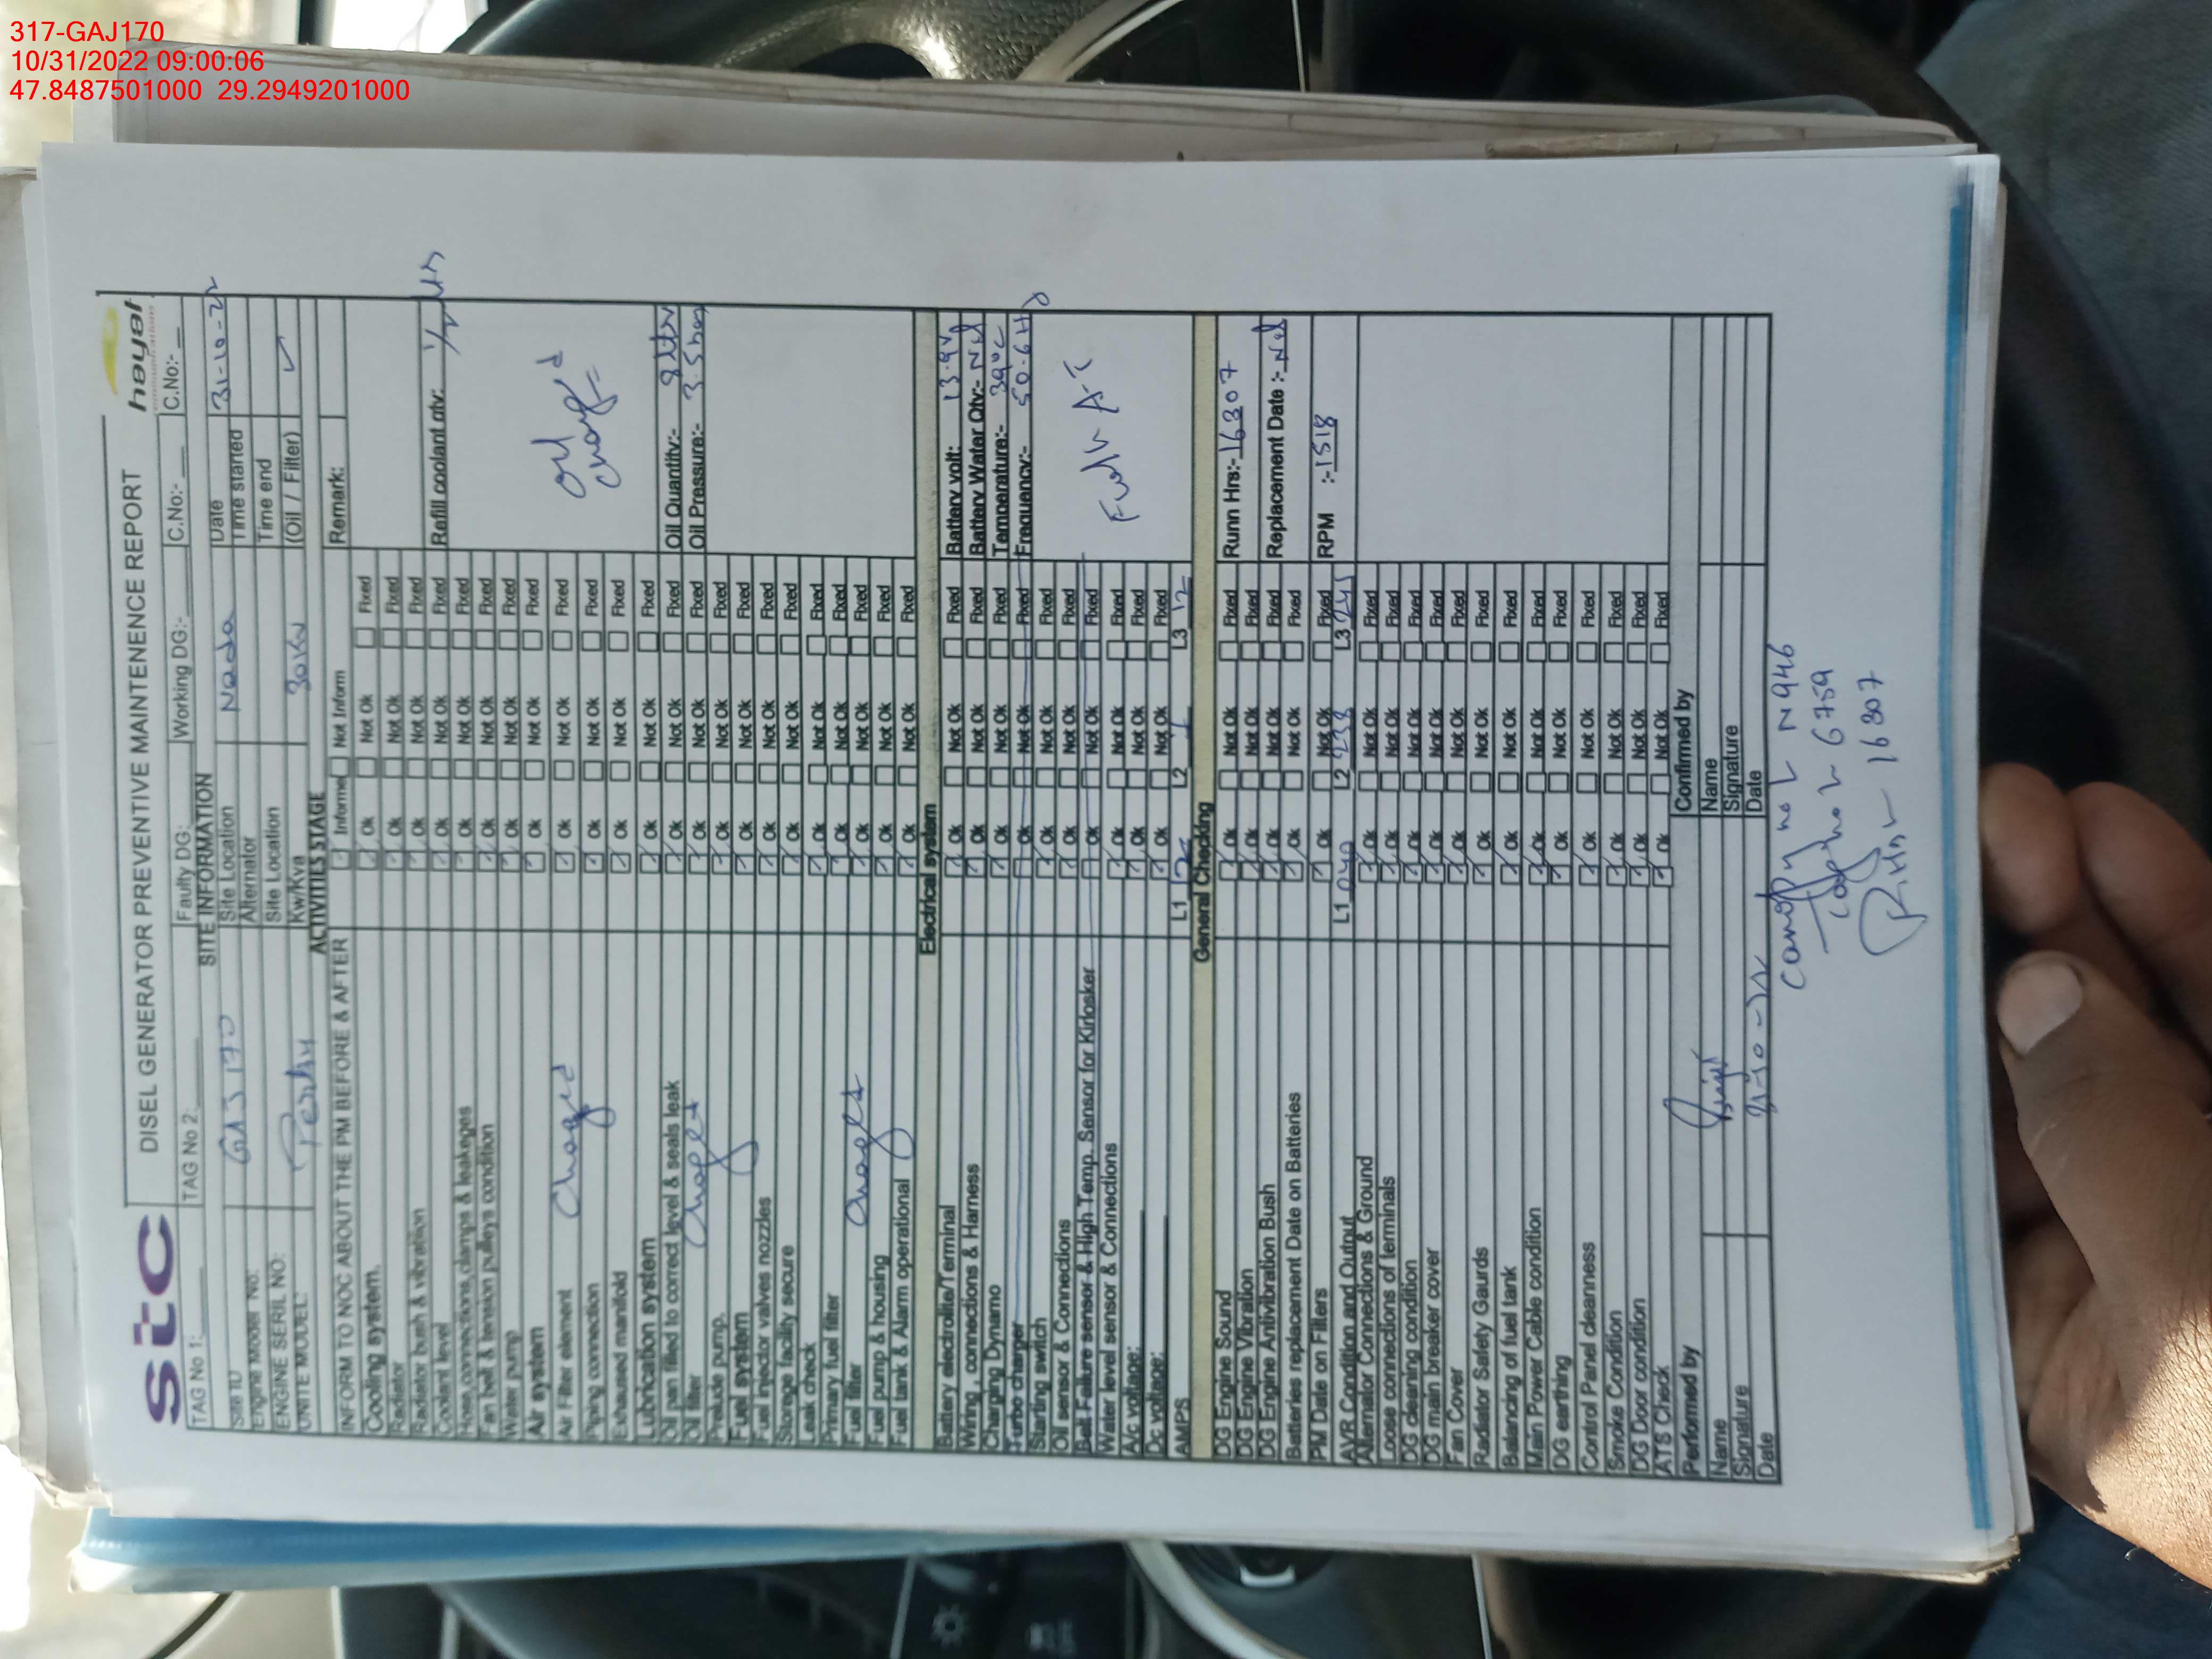 317-GAJ170
10/31/2022 09:00:06
47.8487501000 29.2949201000
stc DISEL GENERATOR PREVENTIVE MAINTENENCE REPORT hayat
TAG No 1: TAG No 2: Faulty DG: Working DG:- C.No:- C.No:-
SITE INFORMATION
Site ID GAJ 170 Site Location Nada Date 31-10-22
Engine Model No: Alternator Time started
ENGINE SERIL NO: Site Location Time end
UNITE MODEL: Kw/Kva 30KV (Oil / Filter) ✓
ACTIVITIES STAGE
INFORM TO NOC ABOUT THE PM BEFORE & AFTER ☑ Informe ☐ Not Inform Remark:
Cooling system. ☑ Ok ☐ Not Ok ☐ Fixed
Radiator ☑ Ok ☐ Not Ok ☐ Fixed
Radiator bush & vibration ☑ Ok ☐ Not Ok ☐ Fixed
Coolant level ☑ Ok ☐ Not Ok ☐ Fixed Refill coolant qty: 1/2 Ltr
Hose,connections,clamps & leakeges ☑ Ok ☐ Not Ok ☐ Fixed
Fan belt & tension pulleys condition ☑ Ok ☐ Not Ok ☐ Fixed
Water pump ☑ Ok ☐ Not Ok ☐ Fixed
Air system ☑ Ok ☐ Not Ok ☐ Fixed
Air Filter element Chaged ☑ Ok ☐ Not Ok ☐ Fixed oil
Piping connection ☑ Ok ☐ Not Ok ☐ Fixed
Exhaused manifold ☑ Ok ☐ Not Ok ☐ Fixed
Lubrication system ☑ Ok ☐ Not Ok ☐ Fixed
Oil pan filled to correct level & seals leak ☑ Ok ☐ Not Ok ☐ Fixed Oil Quantity:- 8 Ltr
Oil filter ☑ Ok ☐ Not Ok ☐ Fixed Oil Pressure:- 3.5
Prelude pump. ☑ Ok ☐ Not Ok ☐ Fixed
Fuel system ☑ Ok ☐ Not Ok ☐ Fixed
Fuel injector valves nozzles ☑ Ok ☐ Not Ok ☐ Fixed
Storage facility secure ☑ Ok ☐ Not Ok ☐ Fixed
Leak check ☑ Ok ☐ Not Ok ☐ Fixed
Primary fuel filter ☑ Ok ☐ Not Ok ☐ Fixed
Fuel filter ☑ Ok ☐ Not Ok ☐ Fixed
Fuel pump & housing ☑ Ok ☐ Not Ok ☐ Fixed
Fuel tank & Alarm operational ☑ Ok ☐ Not Ok ☐ Fixed
Electrical system
Battery electrolite/Terminal ☑ Ok ☐ Not Ok ☐ Fixed Battery volt: 13.9V
Wiring , connections & Harness ☑ Ok ☐ Not Ok ☐ Fixed Battery Water Qty:- Nil
Charging Dynamo ☑ Ok ☐ Not Ok ☐ Fixed Temperature:- 39°C
Turbo charger ☐ Ok ☐ Not Ok ☐ Fixed Frequency:- 50.6 Hz
Starting switch ☑ Ok ☐ Not Ok ☐ Fixed
Oil sensor & Connections ☑ Ok ☐ Not Ok ☐ Fixed
Belt Failure sensor & High Temp. Sensor for Kirlosker ☐ Ok ☐ Not Ok ☐ Fixed
Water level sensor & Connections ☑ Ok ☐ Not Ok ☐ Fixed
A/c voltage: ☑ Ok ☐ Not Ok ☐ Fixed
Dc voltage: ☑ Ok ☐ Not Ok ☐ Fixed
AMPS L1 L2 L3 12
General Checking
DG Engine Sound ☑ Ok ☐ Not Ok ☐ Fixed Runn Hrs:- 16307
DG Engine Vibration ☑ Ok ☐ Not Ok ☐ Fixed
DG Engine Antivibration Bush ☑ Ok ☐ Not Ok ☐ Fixed Replacement Date :- Nil
Batteries replacement Date on Batteries ☑ Ok ☐ Not Ok ☐ Fixed
PM Date on Filters ☑ Ok ☐ Not Ok ☐ Fixed RPM :- 1518
AVR Condition and Output L1 240 L2 238 L3 241
Alternator Connections & Ground ☑ Ok ☐ Not Ok ☐ Fixed
Loose connections of terminals ☑ Ok ☐ Not Ok ☐ Fixed
DG cleaning condition ☑ Ok ☐ Not Ok ☐ Fixed
DG main breaker cover ☑ Ok ☐ Not Ok ☐ Fixed
Fan Cover ☑ Ok ☐ Not Ok ☐ Fixed
Radiator Safety Gaurds ☑ Ok ☐ Not Ok ☐ Fixed
Balancing of fuel tank ☑ Ok ☐ Not Ok ☐ Fixed
Main Power Cable condition ☑ Ok ☐ Not Ok ☐ Fixed
DG earthing ☑ Ok ☐ Not Ok ☐ Fixed
Control Panel cleanness ☑ Ok ☐ Not Ok ☐ Fixed
Smoke Condition ☑ Ok ☐ Not Ok ☐ Fixed
DG Door condition ☑ Ok ☐ Not Ok ☐ Fixed
ATS Check ☑ Ok ☐ Not Ok ☐ Fixed
Performed by Confirmed by
Name Name
Signature Signature
Date 31-10-22 Date
N946
6759
16307